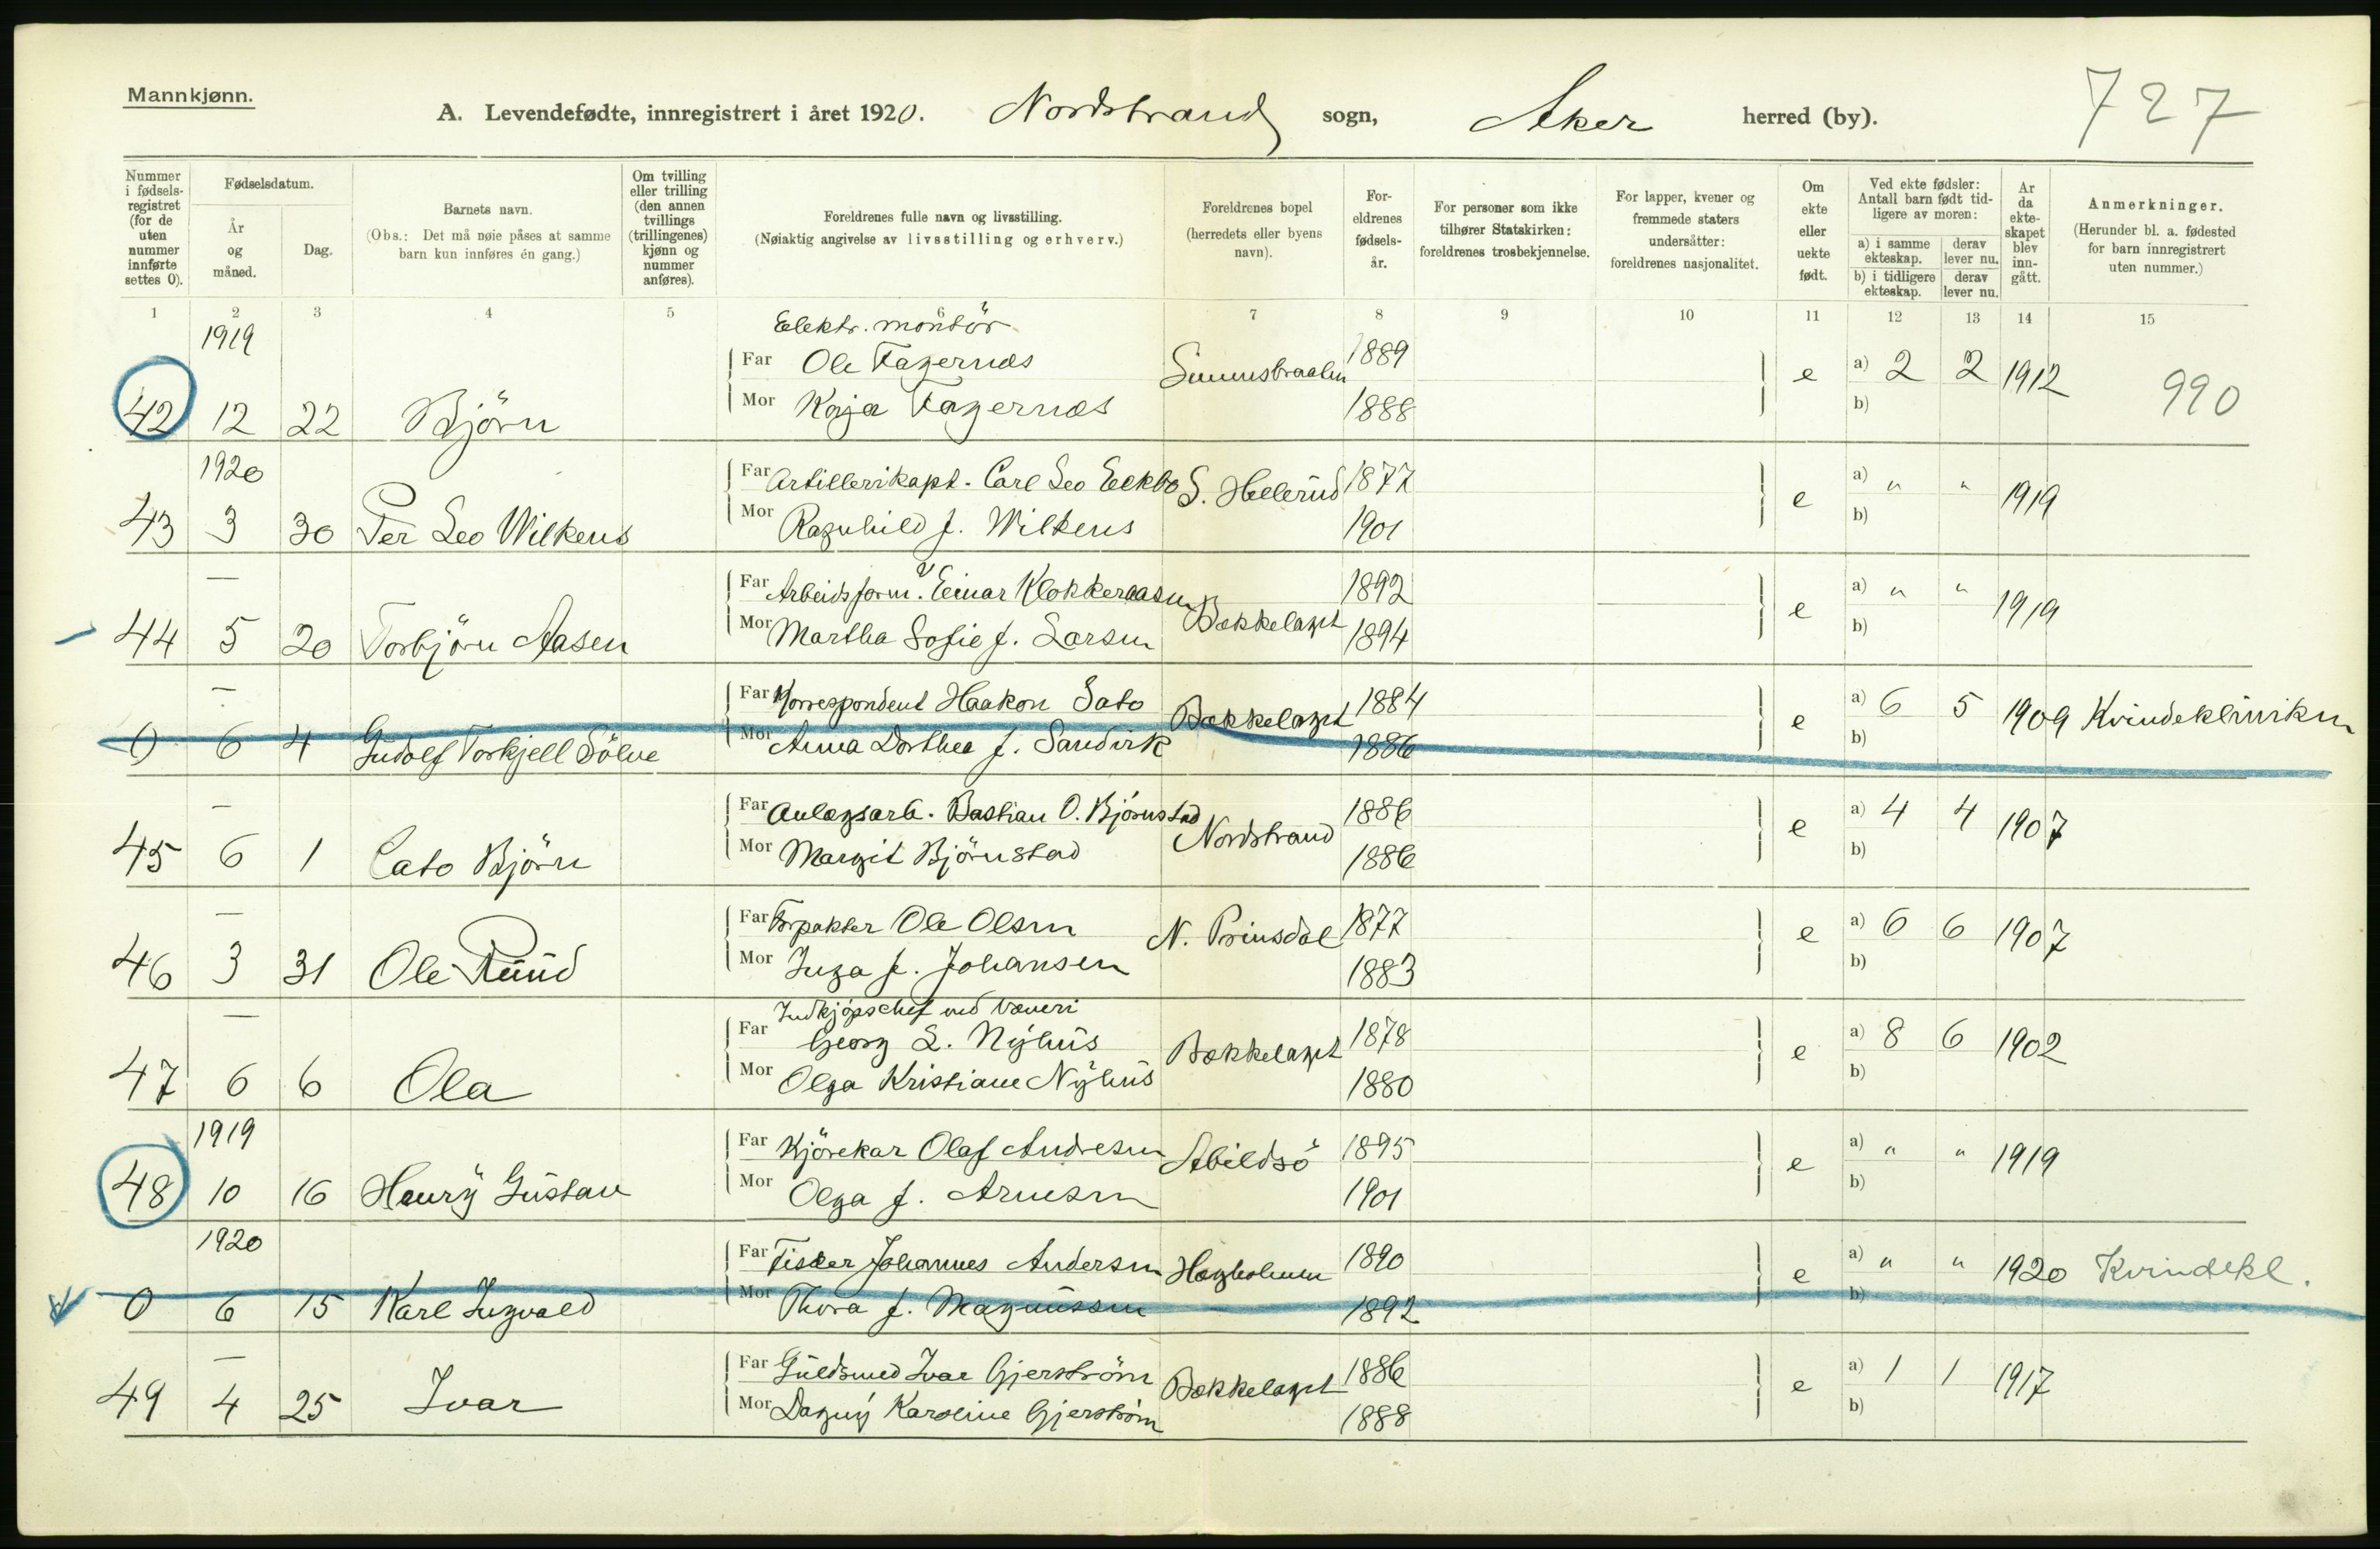 Mannkjønn.
A. Levendefødte, innregistrert i året 1920. Nordstrand sogn, Aker herred (by). 727
Nummer i fødsels-registret (for de uten nummer innførte settes 0).
Fødselsdatum.
År og måned.
Dag.
Barnets navn.
(Obs.: Det må nøie påses at samme barn kun innføres én gang.)
Om tvilling eller trilling (den annen tvillings (trillingenes) kjønn og nummer anføres).
Foreldrenes fulle navn og livsstilling.
(Nøiaktig angivelse av livsstilling og erhverv.)
Foreldrenes bopel (herredets eller byens navn).
For-eldrenes fødsels-år.
For personer som ikke tilhører Statskirken: foreldrenes trosbekjennelse.
For lapper, kvener og fremmede staters undersåtter: foreldrenes nasjonalitet.
Om ekte eller uekte født.
Ved ekte fødsler: Antall barn født tid-ligere av moren:
a) i samme ekteskap. derav lever nu.
b) i tidligere ekteskap. derav lever nu.
År da ekte-skapet blev inn-gått.
Anmerkninger.
(Herunder bl. a. fødested for barn innregistrert uten nummer.)
1 2 3 4 5 6 7 8 9 10 11 12 13 14 15
1919 Elektr. montör
Far Ole Fagernæs 1889
42 12 22 Björn Mor Kaja Fagernæs 1888 e a) 2 2 1912 990
b)
1920 Far Artillerikapt. Carl Leo Eckbo S. Hellerud 1877
43 3 30 Per Leo Wilkens Mor Ragnhild f. Wilkens 1901 e a) " " 1919
b)
— Far Arbeidsform. Einar Klokkeraasen Bækkelaget 1892
44 5 20 Torbjörn Aasen Mor Martha Sofie f. Larsen 1894 e a) " " 1919
b)
— Far Korrespondent Haakon Sato Bækkelaget 1884
0 6 4 Gudolf Torkjell Sölve Mor Anna Dorthea f. Sandvik 1886 e a) 6 5 1909 Kvindekliniken
b)
— Far Anlægsarb. Bastian O. Björnstad Nordstrand 1886
45 6 1 Cato Björn Mor Margit Björnstad 1886 e a) 4 4 1907
b)
— Far Forpakter Ole Olsen N. Prinsdal 1877
46 3 31 Ole Ruud Mor Inga f. Johansen 1883 e a) 6 6 1907
b)
— Indkjöpschef ved Væveri
Far Georg L. Nyhus Bækkelaget 1878
47 6 6 Ola Mor Olga Kristiane Nyhus 1880 e a) 8 6 1902
b)
1919 Far Kjörekar Olaf Andresen Abildsö 1895
48 10 16 Henry Gustav Mor Olga f. Arnesen 1901 e a) " " 1919
b)
1920 Far Fisker Johannes Andersen Hægholmen 1890
0 6 15 Karl Ingvald Mor Thora f. Magnussen 1892 e a) " " 1920 Kvindekl.
b)
— Far Guldsmed Ivar Gjerström Bækkelaget 1886
49 4 25 Ivar Mor Dagny Karoline Gjerström 1888 e a) 1 1 1917
b)